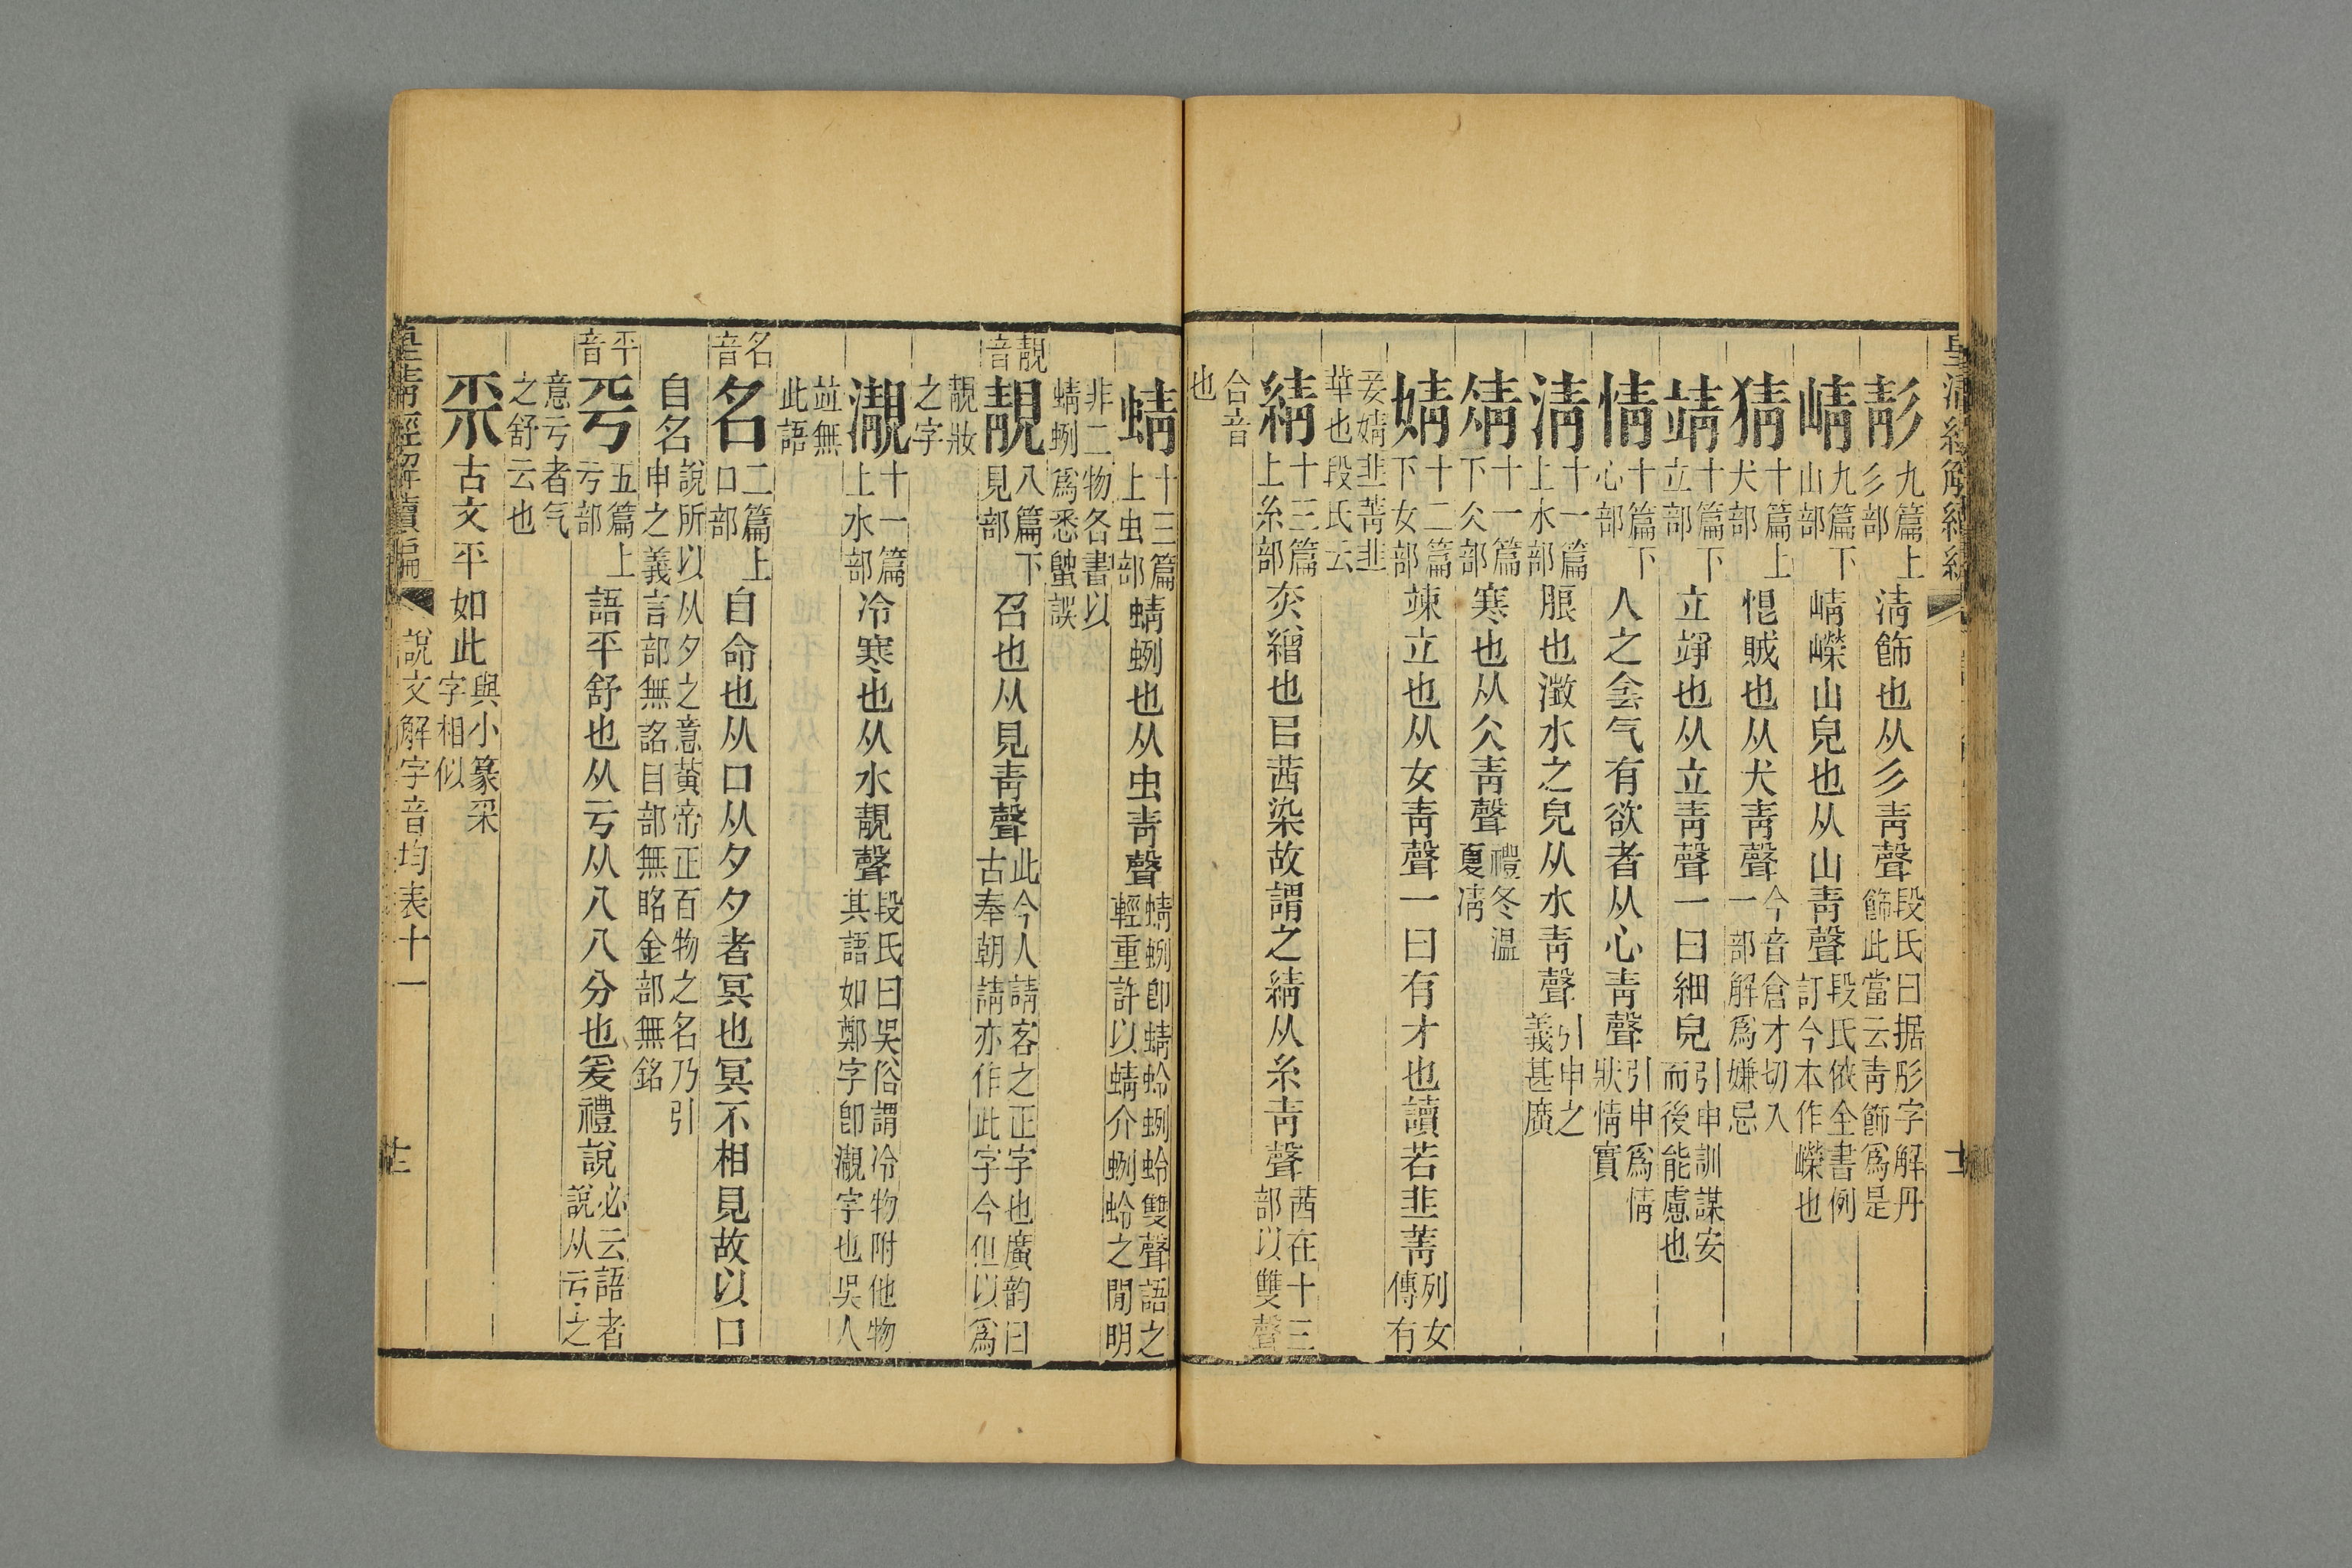 彭九篇上彡部清飾也从彡靑聲段氏曰据彤字解丹飾此當云靑飾爲是
崝九篇下山部崝嶸山皃也从山靑聲段氏依全書例訂今本作嶸也
猜十篇上犬部恨賊也从犬靑聲今音倉才切入一部解爲嫌忌
竫十篇下立部立竫也从立靑聲一曰細皃引申訓謀安而後能慮也
情十篇下心部人之侌气有欲者从心靑聲引申爲情狀情實
淸十一篇上水部朖也澂水之皃从水靑聲引申之義甚廣
凊十一篇下仌部寒也从仌靑聲禮冬溫夏凊
婧十二篇下女部竦立也从女靑聲一曰有才也讀若韭菁列女傳有
妾婧韭菁韭華也段氏云
綪十三篇上糸部赤繒也㠯茜染故謂之綪从糸靑聲茜在十三部以雙聲
合音也
蜻十三篇上虫部蜻蛚也从虫靑聲蜻蛚卽蜻蛉蛚蛉雙聲語之輕重許以蜻介蛚蛉之閒明
非二物各書以蜻蛚爲悉䗐誤
靚音靚八篇下見部召也从見靑聲此今人請客之正字也廣韵曰古奉朝請亦作此字今但以爲
靚妝之字
瀞十一篇上水部冷寒也从水靚聲段氏曰吳俗謂冷物附他物其語如鄭字卽瀞字也吳人
並無此語
名音名二篇上口部自命也从口从夕夕者冥也冥不相見故以口
自名說所以从夕之意黃帝正百物之名乃引申之義言部無詺目部無眳金部無銘
平音𠀾五篇上亏部語平舒也从亏从八八分也爰禮說必云語者說从亏之
意亏者气之舒云也
𠀘古文平如此與小篆釆字相似
皇淸經解續編 說文解字音均表十一 十三